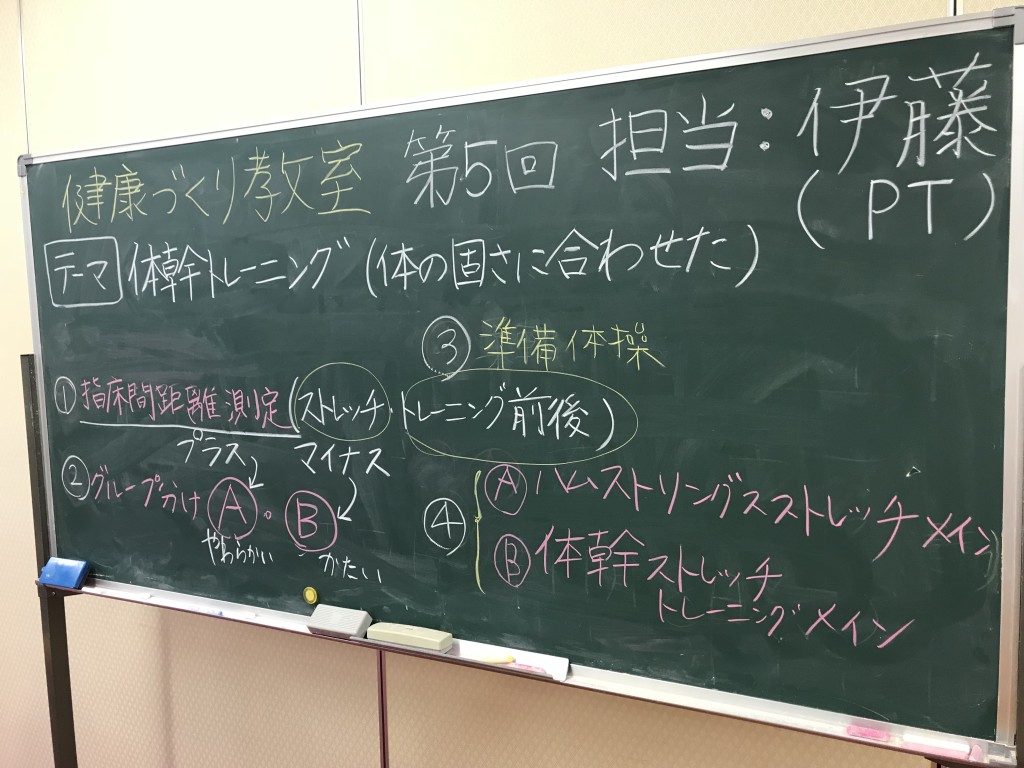 健康づくり教室 第5回 担当:伊藤
(PT)
テーマ 体幹トレーニング(体の固さに合わせた)
① 指床間距離測定(ストレッチ・トレーニング前後)
プラス マイナス
② グループ分け A。B
やわらかい かたい
③ 準備体操
④ A ハムストリングスストレッチメイン
B 体幹ストレッチ
トレーニングメイン